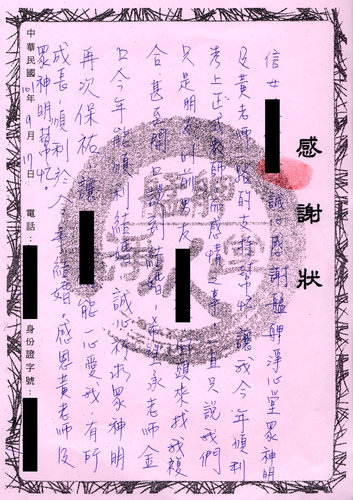 感謝狀
信女 誠心感謝艋舺淨心堂眾神明
及黃老師一路的支持幫忙 讓我今年順利
考上正式教師 而感情之事 一直只說我們
只是朋友的前男友 回頭來找我複
合 甚至開口說到結婚 老師金
口今年能順利結婚 誠心祈求眾神明
再次保祐 讓 能一心愛我 有所
成長 順利於 年結婚 感恩黃老師及
眾神明幫忙。
中華民國101年9月17日 電話: 身份證字號: